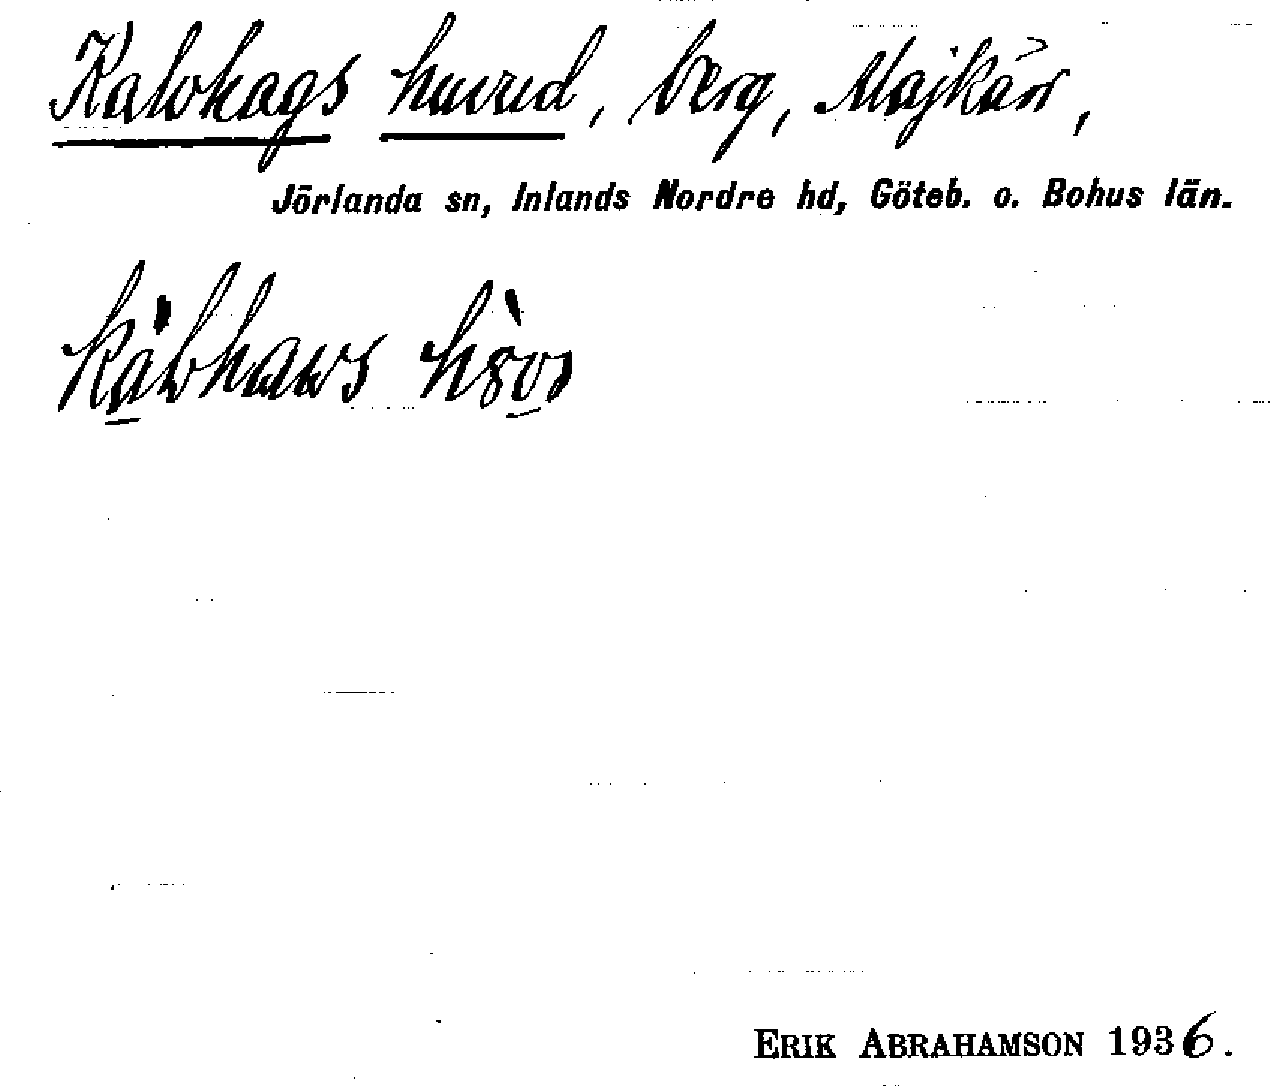 Kalvhags huvud, berg, Majkärr,
Jörlanda sn, Inlands Nordre hd, Göteb. o. Bohus län.
ERIK ABRAHAMSON 1936.